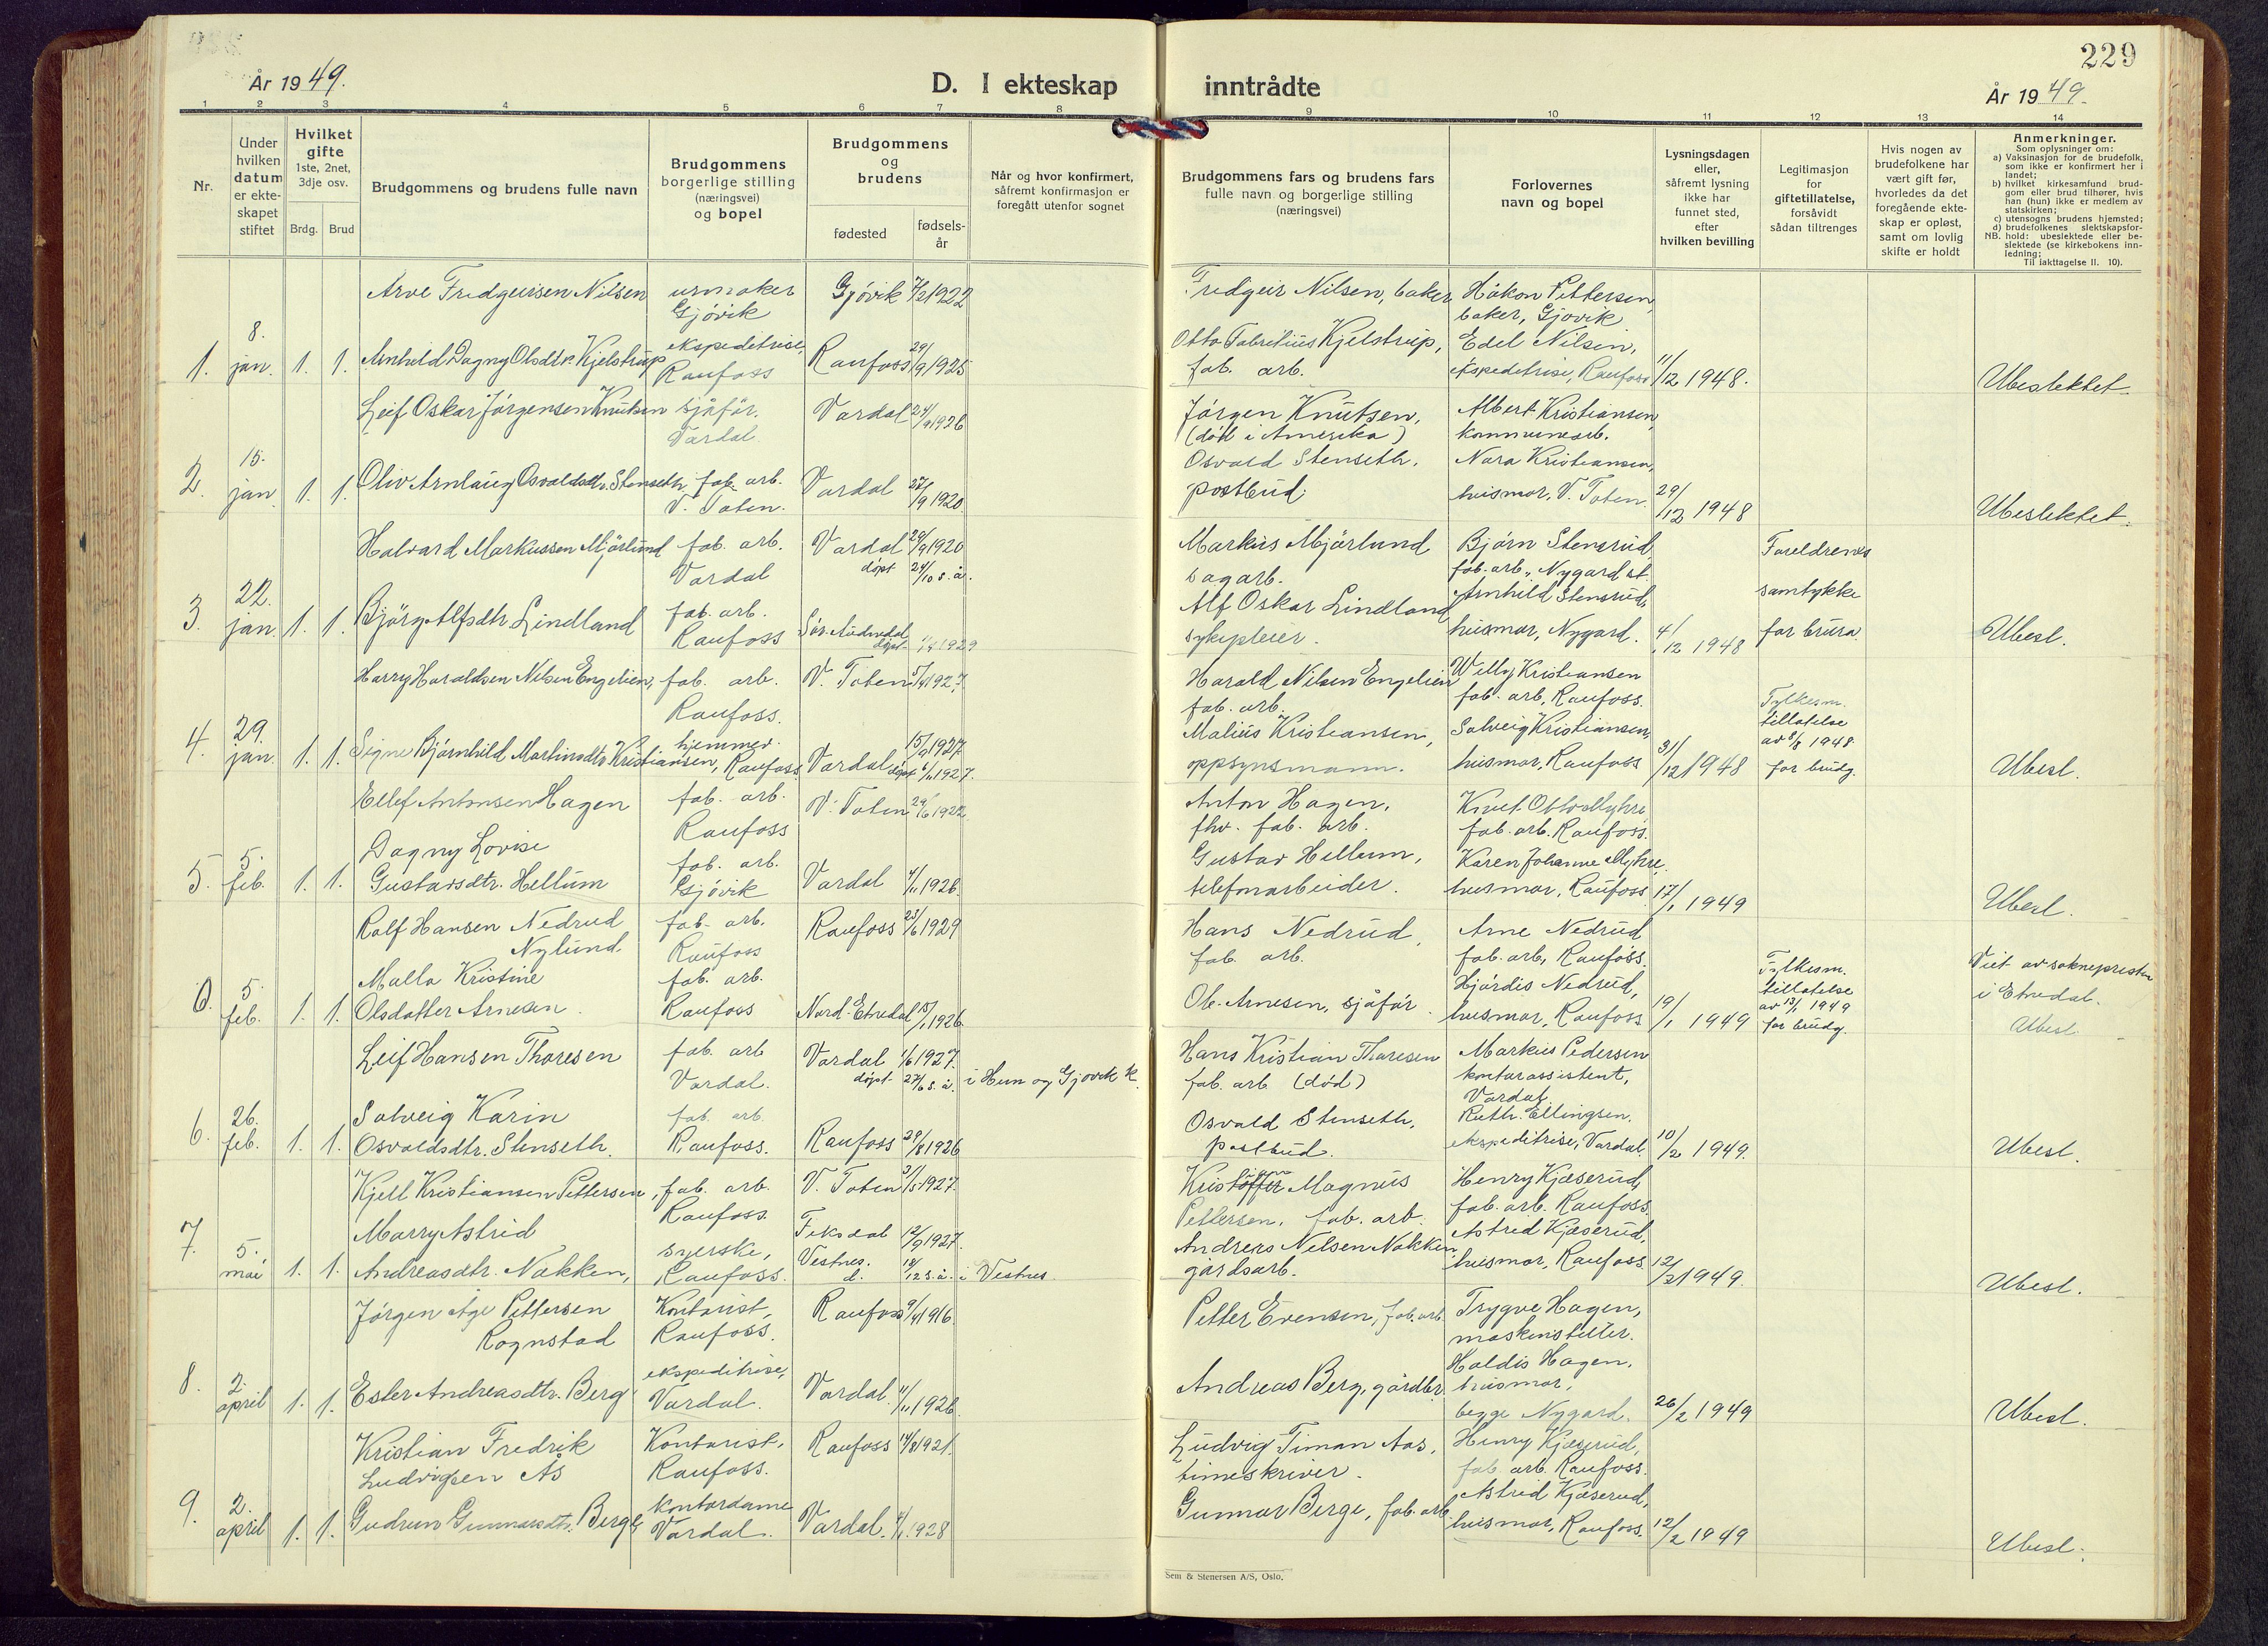 229
År 1949.
D. I ekteskap inntrådte
År 1949.
1 2 3 4 5 6 7 8 9 10 11 12 13 14
Nr.
Under hvilken datum er ekte-skapet stiftet
Hvilket gifte
1ste, 2net, 3dje osv.
Brdg. Brud
Brudgommens og brudens fulle navn
Brudgommens borgerlige stilling (næringsvei) og bopel
Brudgommens og brudens
fødested
fødsels-år
Når og hvor konfirmert, såfremt konfirmasjon er foregått utenfor sognet
Brudgommens fars og brudens fars fulle navn og borgerlige stilling (næringsvei)
Forlovernes navn og bopel
Lysningsdagen eller, såfremt lysning ikke har funnet sted, efter hvilken bevilling
Legitimasjon for giftetillatelse, forsåvidt sådan tiltrenges
Hvis nogen av brudefolkene har vært gift før, hvorledes da det foregående ekte-skap er opløst, samt om lovlig skifte er holdt
Anmerkninger.
Som oplysninger om:
a) Vaksinasjon for de brudefolk, som ikke er konfirmert her i landet;
b) hvilket kirkesamfund brud-gom eller brud tilhører, hvis han (hun) ikke er medlem av statskirken;
c) utensogns brudens hjemsted;
d) brudefolkenes slektskapsfor-hold: ubeslektede eller be-slektede (se kirkebokens inn-ledning;
NB.
Til iakttagelse II. 10).
Arve Fredgeirsen Nilsen urmaker Gjøvik Gjøvik 7/2 1922 Fredgeir Nilsen, baker Håkon Pettersen, baker, Gjøvik
1. 8. jan. 1. 1. Arnhild Dagny Olsdtr. Kjelstrup ekspeditrise, Raufoss Raufoss 29/9 1925 Otto Fabritius Kjelstrup, fab. arb. Edel Nilsen, ekspeditrise, Raufoss 11/12 1948. Ubeslektet.
Leif Oskar Jørgensen Knutsen sjåfør, Vardal Vardal 24/9 1926 Jørgen Knutsen, (død i Amerika) Albert Kristiansen, kommunearb.
2. 15. jan 1. 1. Oliv Arnlaug Osvaldsdtr. Stenseth fab. arb. V. Toten. Vardal 27/9 1920 Osvald Stenseth, postbud. Nora Kristiansen, husmor, V. Toten. 29/12 1948 Ubeslektet.
Halvard Markussen Mjørlund fab. arb. Vardal Vardal 20/9 1920 døpt 24/10 s. å. Markus Mjørlund sagarb. Bjørn Stensrud, fab. arb., Nygard st. Foreldrenes
3. 22. jan. 1. 1. Bjørg Alfsdtr. Lindland fab. arb. Raufoss Sør-Audnedal døpt 1929 Alf Oskar Lindland sykepleier. Arnhild Stensrud, husmor, Nygard. 4/12 1948 samtykke for brura. Ubesl.
Harry Haraldsen Nilsen Engelien, fab. arb. Raufoss. V. Toten 1927 Harald Nilsen Engelien fab. arb. Willy Kristiansen fab. arb, Raufoss.
4. 29. jan 1. 1. Signe Bjørnhild Martinsdtr. Kristiansen, hjemmev. Raufoss Vardal 1927. døpt 1927. Malius Kristiansen, oppsynsmann. Solveig Kristiansen, husmor, Raufoss 31/12 1948 Fylkesm. tillatelse av 5/8 1948 for brudg. Ubesl.
Ellef Antonsen Hagen fab. arb. Raufoss V. Toten 29/6 1922 Anton Hagen, fhv. fab. arb. Knut Otto Myhre, fab. arb. Raufoss.
5. 5. feb. 1. 1. Dagny Lovise Gustavsdtr. Hellum fab. arb. Gjøvik Vardal 1926 Gustav Hellum, telefonarbeider. Karen Johanne Myhre, husmor, Raufoss 17/1 1949 Ubesl.
Rolf Hansen Nedrud Nylund. fab. arb. Raufoss Raufoss 23/6 1929 Hans Nedrud, fab. arb. Arne Nedrud fab. arb, Raufoss.
0. 5. feb. 1. 1. Malla Kristine Olsdatter Arnesen. fab. arb. Raufoss Nord-Etnedal 15/1 1926 Ole Arnesen, sjåfør Hjørdis Nedrud, husmor, Raufoss 19/1 1949 Fylkesm. tillatelse av 13/1 1949 for brudg. Viet av sokneprest i Etnedal. Ubesl.
Leif Hansen Thoresen fab. arb Vardal. Vardal 1/6 1927. døpt 27/6 s. å. i Hun og Gjøvik k. Hans Kristian Thoresen fab. arb (død) Markus Pedersen kontorassistent, Vardal.
6. 26. feb. 1. 1. Solveig Karin Osvaldsdtr. Stenseth. fab. arb. Raufoss. Raufoss 29/8 1926 Osvald Stenseth, postbud. Ruth Ellingsen, ekspeditrise, Vardal. 10/2 1949. Ubesl.
Kjell Kristiansen Pettersen, fab. arb. Raufoss. V. Toten 3/5 1927. Kristian Magnus Pettersen, fab. arb. Henry Kjæserud, fab. arb. Raufoss.
7. 5. mai 1. 1. Marry Astrid Andreasdtr. Nakken, syerske, Raufoss. Fiksdal Vestnes. 12/9 1927. d. 18/12 s. å. i Vestnes. Andreas Nilsen Nakken gårdsarb. Astrid Kjæserud, husmor, Raufoss. 12/2 1949. Ubesl.
Jørgen Åge Pettersen Rognstad Kontorist, Raufoss. Raufoss 9/4 1916. Petter Evensen, fab. arb. Trygve Hagen, maskinstiller.
8. 2. april 1. 1. Ester Andreasdtr. Berg ekspeditrise, Vardal. Vardal. 11/11 1926. Andreas Berg, gårdbr. Haldis Hagen, husmor, begge Nygard. 26/2 1949 Ubesl.
Kristian Fredrik Ludvigsen Ås Kontorist, Raufoss. Raufoss 14/8 1921. Ludvig Timan Aas, timeskriver. Henry Kjæserud, fab. arb. Raufoss.
9. 2. april 1. 1. Gudrun Gunnarsdtr. Berge, kontordame Vardal. Vardal. 1928 Gunnar Berge, fab. arb. Astrid Kjæserud, husmor, Raufoss. 12/2 1949 Ubesl.
Sem & Stenersen A/S, Oslo.